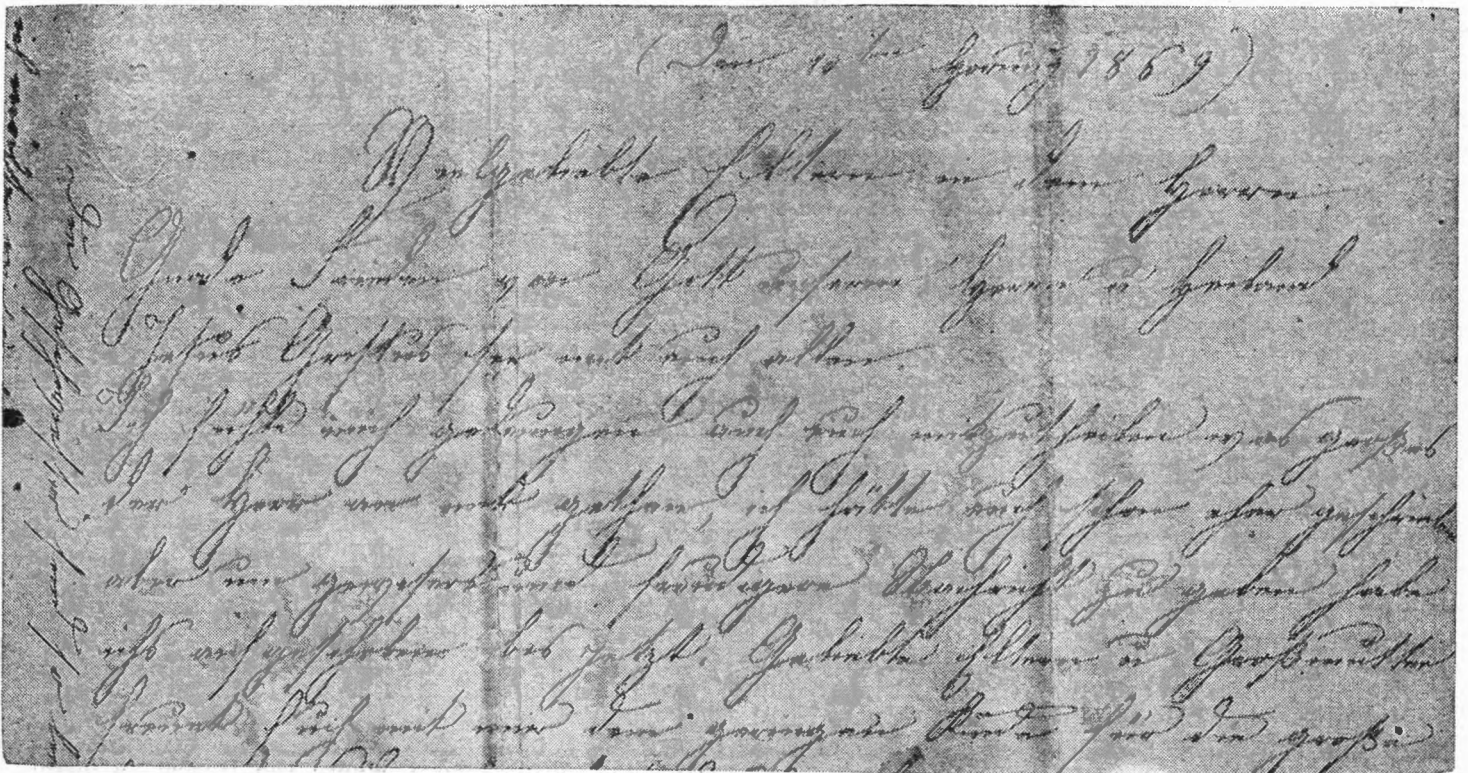 (Den 10ten Hornug 1869)
Vielgeliebte Eltern in dem Herrn
Gnade Frieden von Gott unserm Herrn u Heiland
Jesus Cristus sei mit euch allen.
Ich fühle mich gedrungen auch euch mitzutheilen was großes
der Herr an mir gethan, ich hätte euch schon eher geschrieben
aber um gewisere und freudigere Nachricht zu geben habe
ichs aufgeschoben bis jetzt. Geliebte Eltern u Großmutter
Freuet Euch mit mir dem geringen Kinde für die große